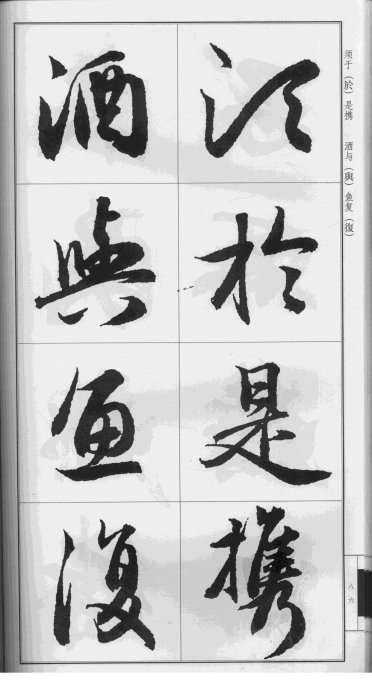 须于（於）是携 酒与（與）鱼复（復）
須於是攜
酒與魚復
八六